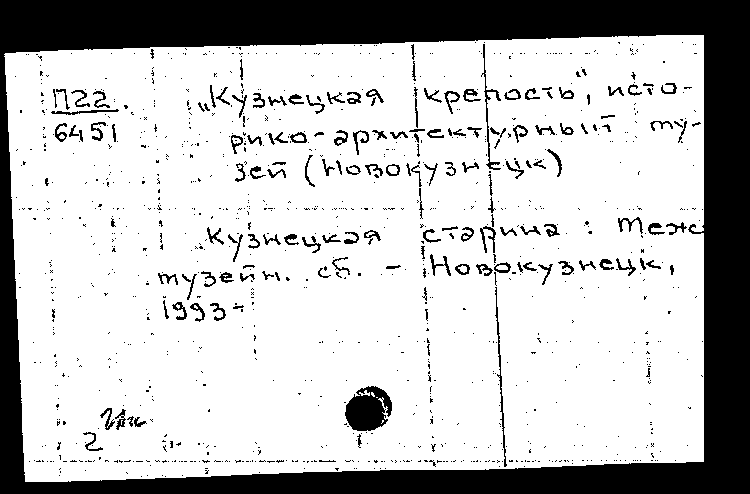 П22.
6451
„Кузнецкая крепость“, исто-
рико-архитектурный му-
зей (Новокузнецк)
Кузнецкая старина : Меж
музейн. сб. - Новокузнецк,
1993-
2